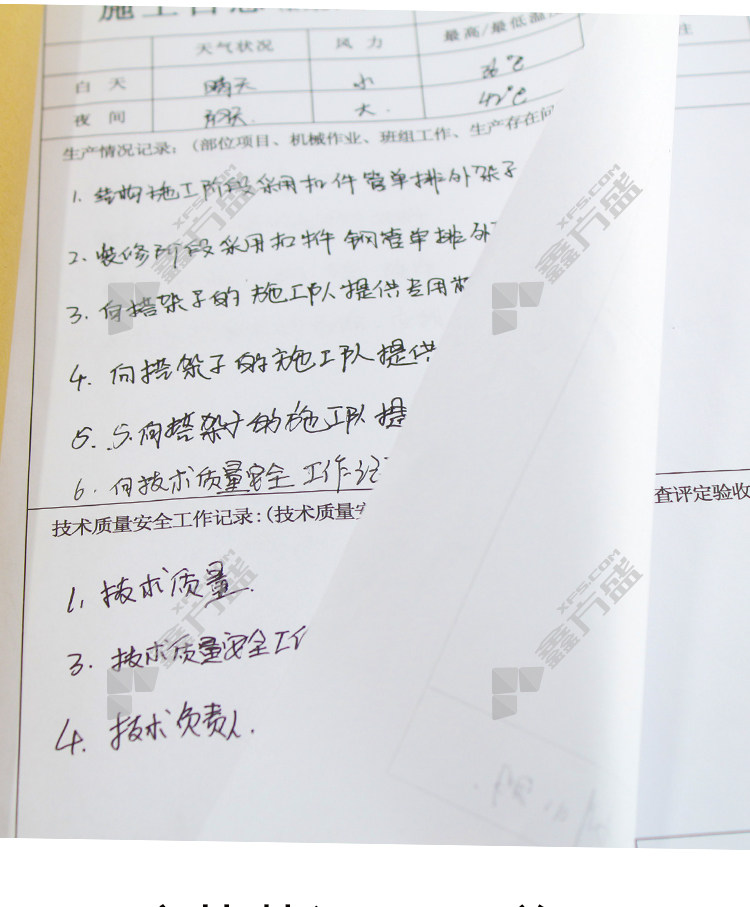 施工日志
天气状况 风力 最高/最低温
注
白天 晴天 小 36℃
夜间 大. 42℃
生产情况记录:(部位项目、机械作业、班组工作、生产存在问
1. 结构施工阶段采用扣件管单排外架子
2. 装修阶段采用扣件钢管单排外
3. 向搭架子的施工队提供专用
4. 向搭架子的施工队提供
5. 5.向搭架子的施工队提
6. 向技术质量安全工作记
技术质量安全工作记录:(技术质量安
查评定验收
1. 技术质量.
3. 技术质量安全工作
4. 技术负责人.
鑫方盛
XFS.COM
鑫方盛
XFS.COM
鑫方盛
XFS.COM
鑫方盛
XFS.COM